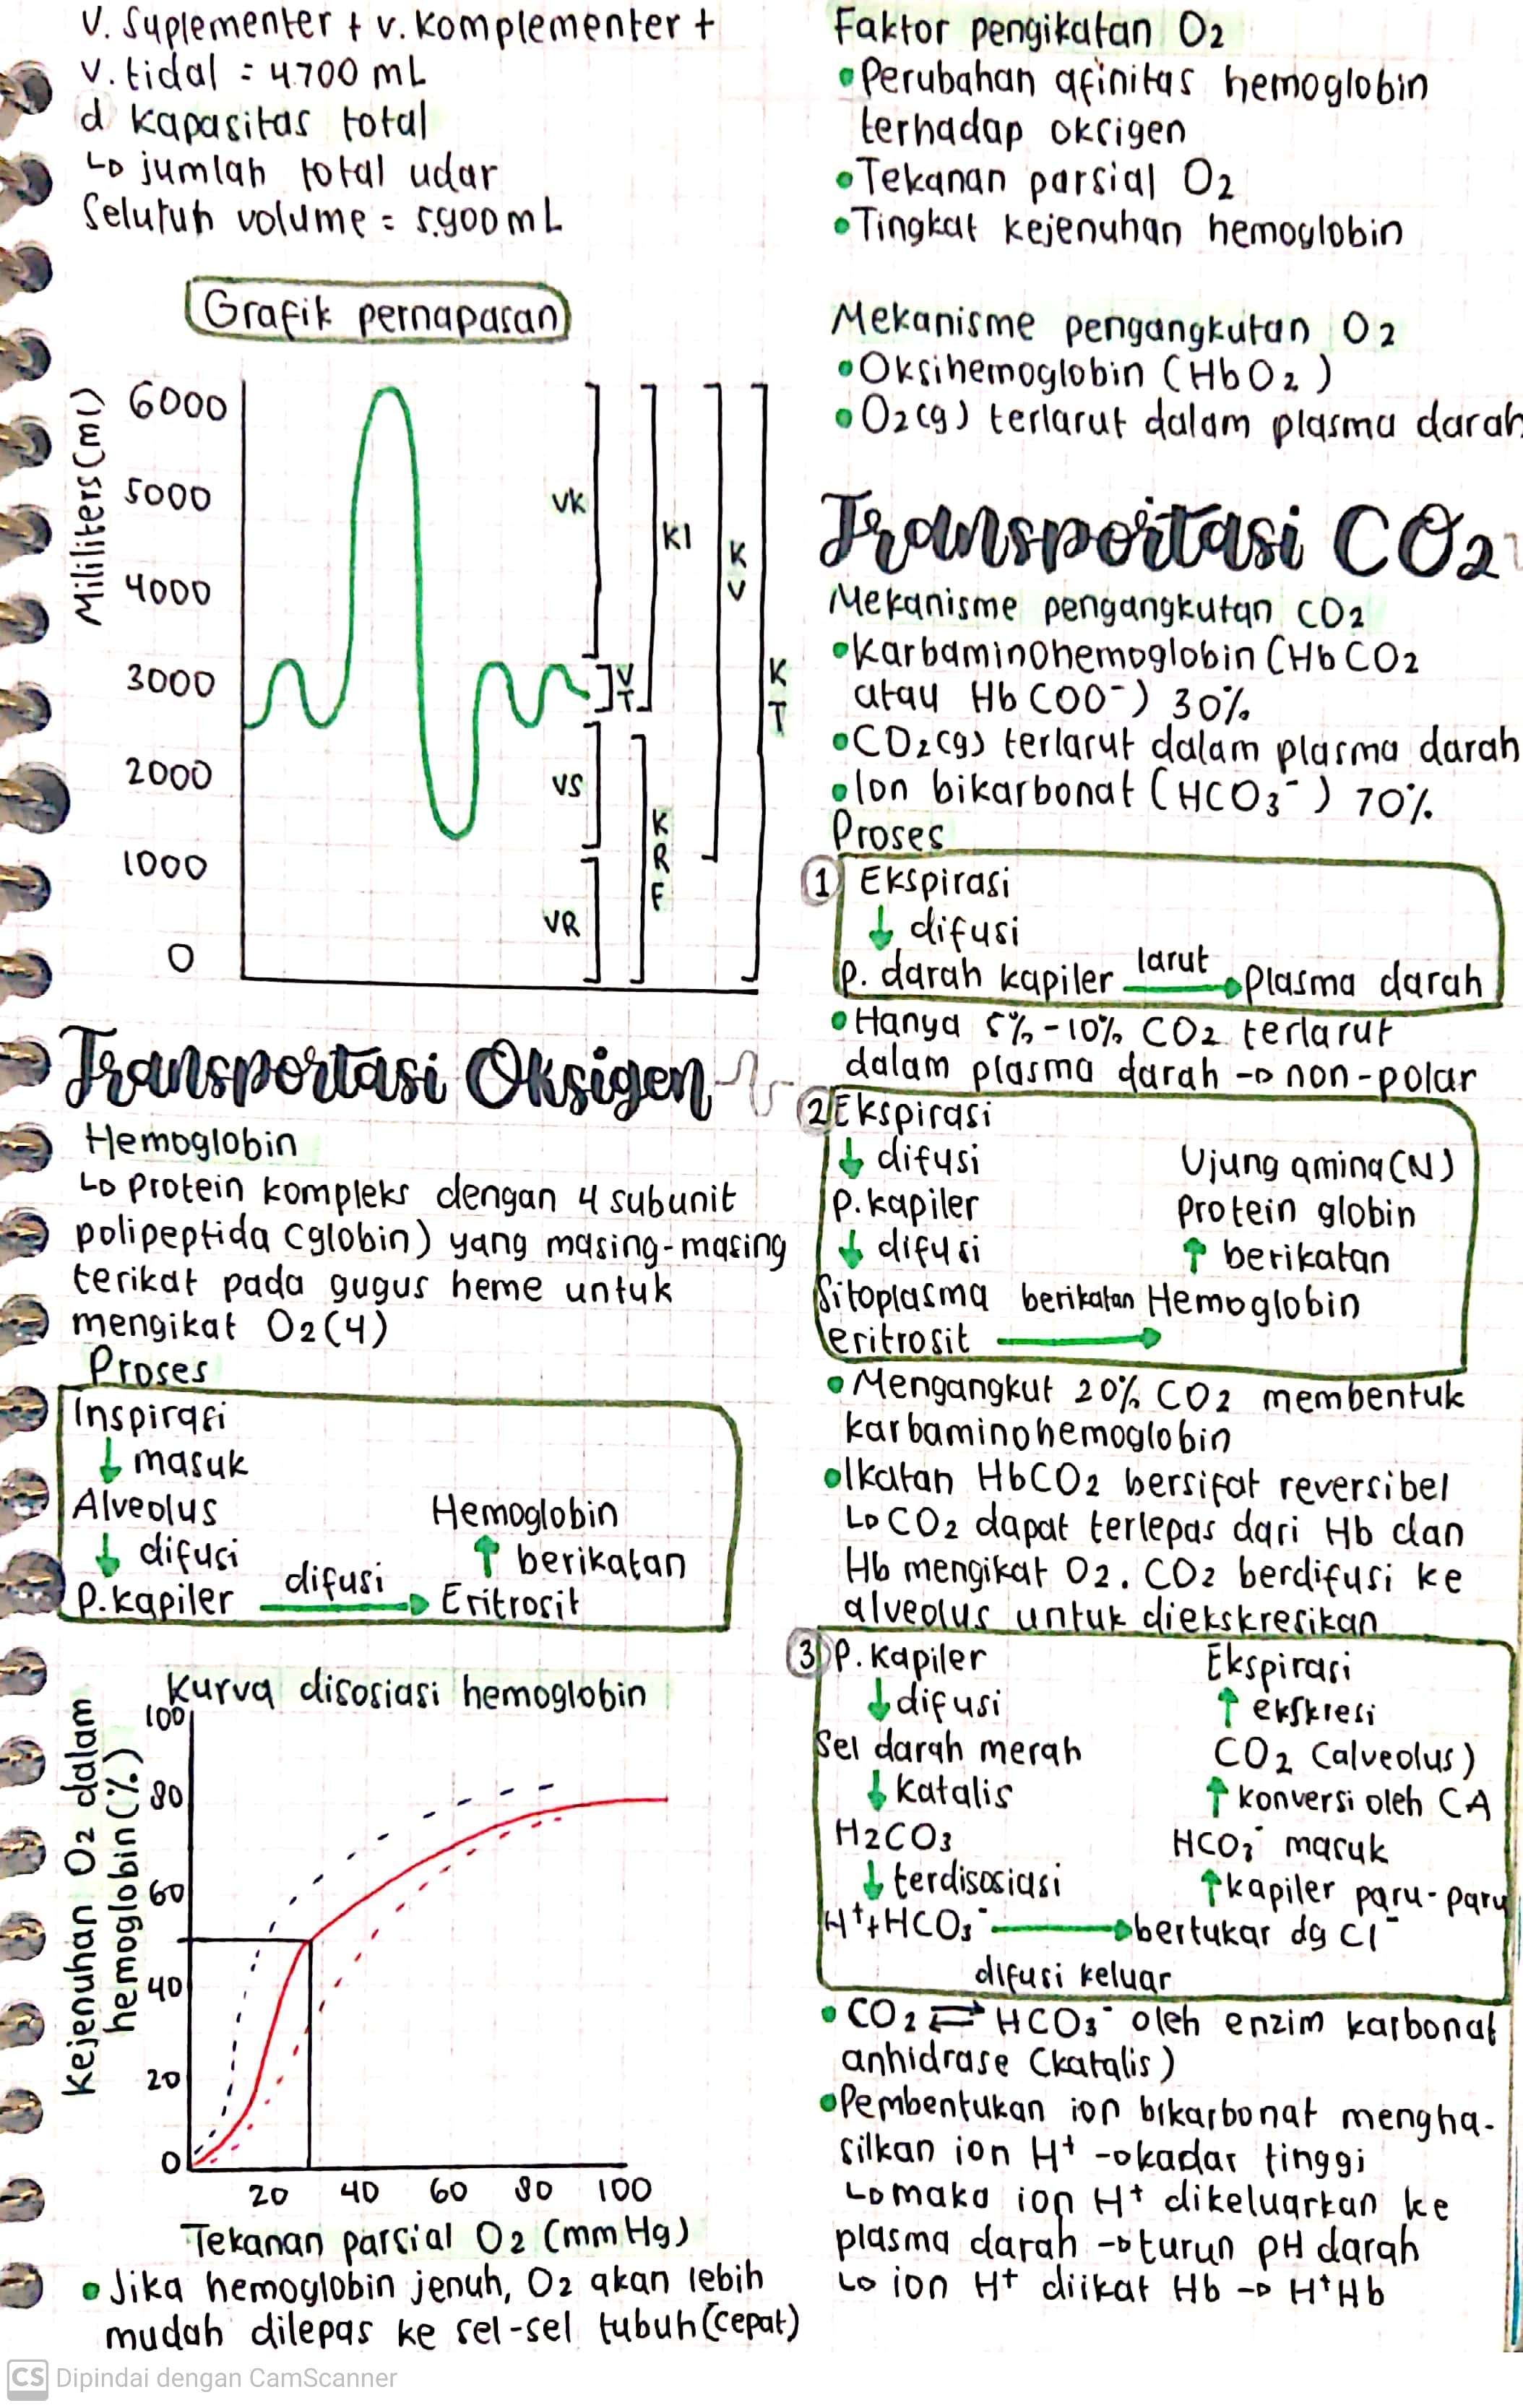 V. Suplementer + v. komplementer +
v. tidal = 4.700 mL
d kapasitas total
↳ jumlah total udar
Seluruh volume = 5.900 mL
Grafik pernapasan
Mililiters (ml)
6000
5000
4000
3000
2000
1000
0
VK
KI
KV
KT
VT
VS
KRF
VR
Transportasi Oksigen
Hemoglobin
↳ protein kompleks dengan 4 subunit
polipeptida (globin) yang masing-masing
terikat pada gugus heme untuk
mengikat O2(4)
Proses
Inspirasi
↓ masuk
Alveolus
↓ difusi
P. kapiler
difusi →
Eritrosit
↑ berikatan
Hemoglobin
Kurva disosiasi hemoglobin
Kejenuhan O2 dalam
hemoglobin (%)
100
80
60
40
20
0
20 40 60 80 100
Tekanan parsial O2 (mm Hg)
• Jika hemoglobin jenuh, O2 akan lebih
mudah dilepas ke sel-sel tubuh (cepat)
Faktor pengikatan O2
• Perubahan afinitas hemoglobin
terhadap oksigen
• Tekanan parsial O2
• Tingkat kejenuhan hemoglobin
Mekanisme pengangkutan O2
• Oksihemoglobin (HbO2)
• O2(g) terlarut dalam plasma darah
Transportasi CO2
Mekanisme pengangkutan CO2
• Karbaminohemoglobin (HbCO2
atau HbCOO⁻) 30%
• CO2(g) terlarut dalam plasma darah
• Ion bikarbonat (HCO3⁻) 70%
Proses
1 Ekspirasi
↓ difusi
p. darah kapiler larut → Plasma darah
• Hanya 5%-10% CO2 terlarut
dalam plasma darah → non-polar
2 Ekspirasi
↓ difusi
P. kapiler
↓ difusi
Sitoplasma
eritrosit
berikatan →
Hemoglobin
↑ berikatan
Ujung amina (N)
Protein globin
• Mengangkut 20% CO2 membentuk
karbaminohemoglobin
• Ikatan HbCO2 bersifat reversibel
↳ CO2 dapat terlepas dari Hb dan
Hb mengikat O2. CO2 berdifusi ke
alveolus untuk diekskresikan
3 P. kapiler
↓ difusi
Sel darah merah
↓ katalis
H2CO3
↓ terdisosiasi
H⁺+HCO3⁻ → bertukar dg Cl⁻
difusi keluar
↑ kapiler paru-paru
HCO3⁻ masuk
↑ konversi oleh CA
CO2 (alveolus)
↑ ekskresi
Ekspirasi
• CO2 ⇄ HCO3⁻ oleh enzim karbonat
anhidrase (katalis)
• Pembentukan ion bikarbonat mengha-
silkan ion H⁺ → kadar tinggi
↳ maka ion H⁺ dikeluarkan ke
plasma darah → turun pH darah
↳ ion H⁺ diikat Hb → H⁺Hb
CS Dipindai dengan CamScanner